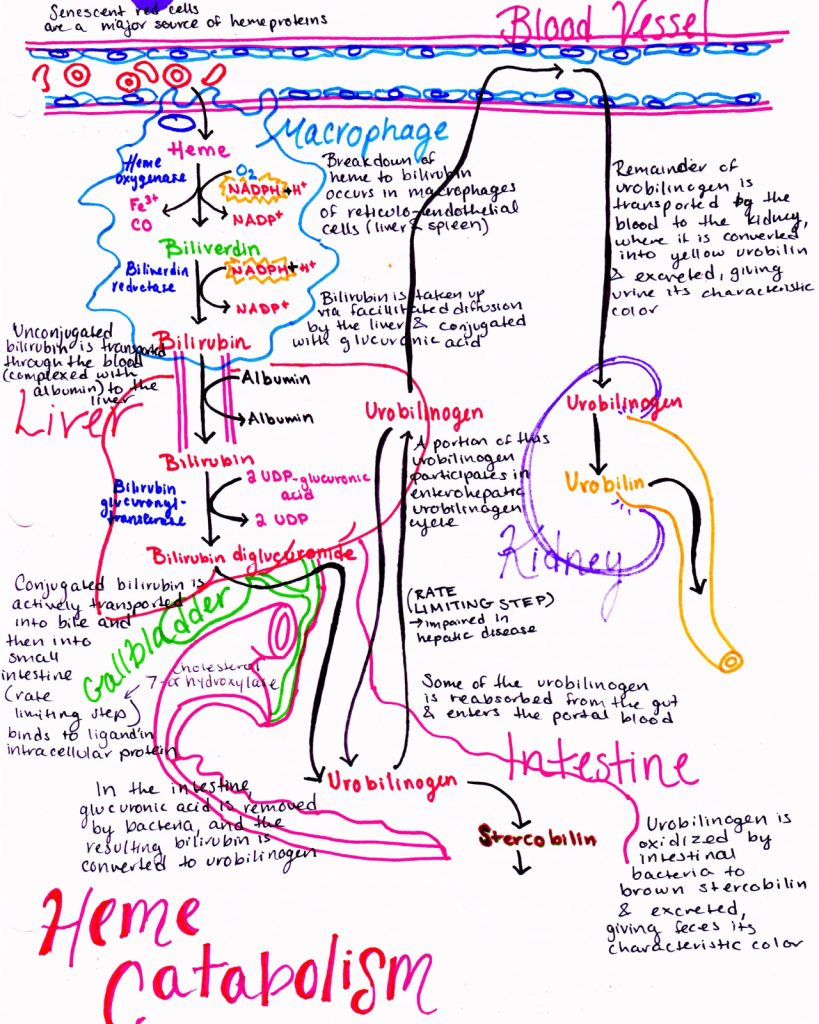 Senescent red cells
are a major source of hemeproteins
Blood Vessel
Macrophage
Heme
Heme
oxygenase
O2
NADPH + H+
Fe3+
CO
NADP+
Biliverdin
Biliverdin
reductase
NADPH + H+
NADP+
Bilirubin
Breakdown of
heme to bilirubin
occurs in macrophages
of reticulo-endothelial
cells (liver & spleen)
Bilirubin is taken up
via facilitated diffusion
by the liver & conjugated
with glucuronic acid
Remainder of
urobilinogen is
transported by the
blood to the kidney,
where it is converted
into yellow urobilin
& excreted, giving
urine its characteristic
color
Unconjugated
bilirubin is transported
through the blood
(complexed with
albumin) to the
liver
Liver
Albumin
Albumin
Bilirubin
Bilirubin
glucuronyl-
transferase
2 UDP-glucuronic
acid
2 UDP
Bilirubin diglucuronide
Urobilinogen
A portion of this
urobilinogen
participates in
enterohepatic
urobilinogen
cycle
(RATE
LIMITING STEP)
→ impaired in
hepatic disease
Urobilinogen
Urobilin
Kidney
Conjugated bilirubin is
actively transported
into bile and
then into
small
intestine
(rate
limiting step)
binds to ligandin
intracellular protein
Gallbladder
Cholesterol
7-α hydroxylase
Some of the urobilinogen
is reabsorbed from the gut
& enters the portal blood
Intestine
In the intestine,
glucuronic acid is removed
by bacteria, and the
resulting bilirubin is
converted to urobilinogen
Urobilinogen
Stercobilin
Urobilinogen is
oxidized by
intestinal
bacteria to
brown stercobilin
& excreted,
giving feces its
characteristic color
Heme
Catabolism